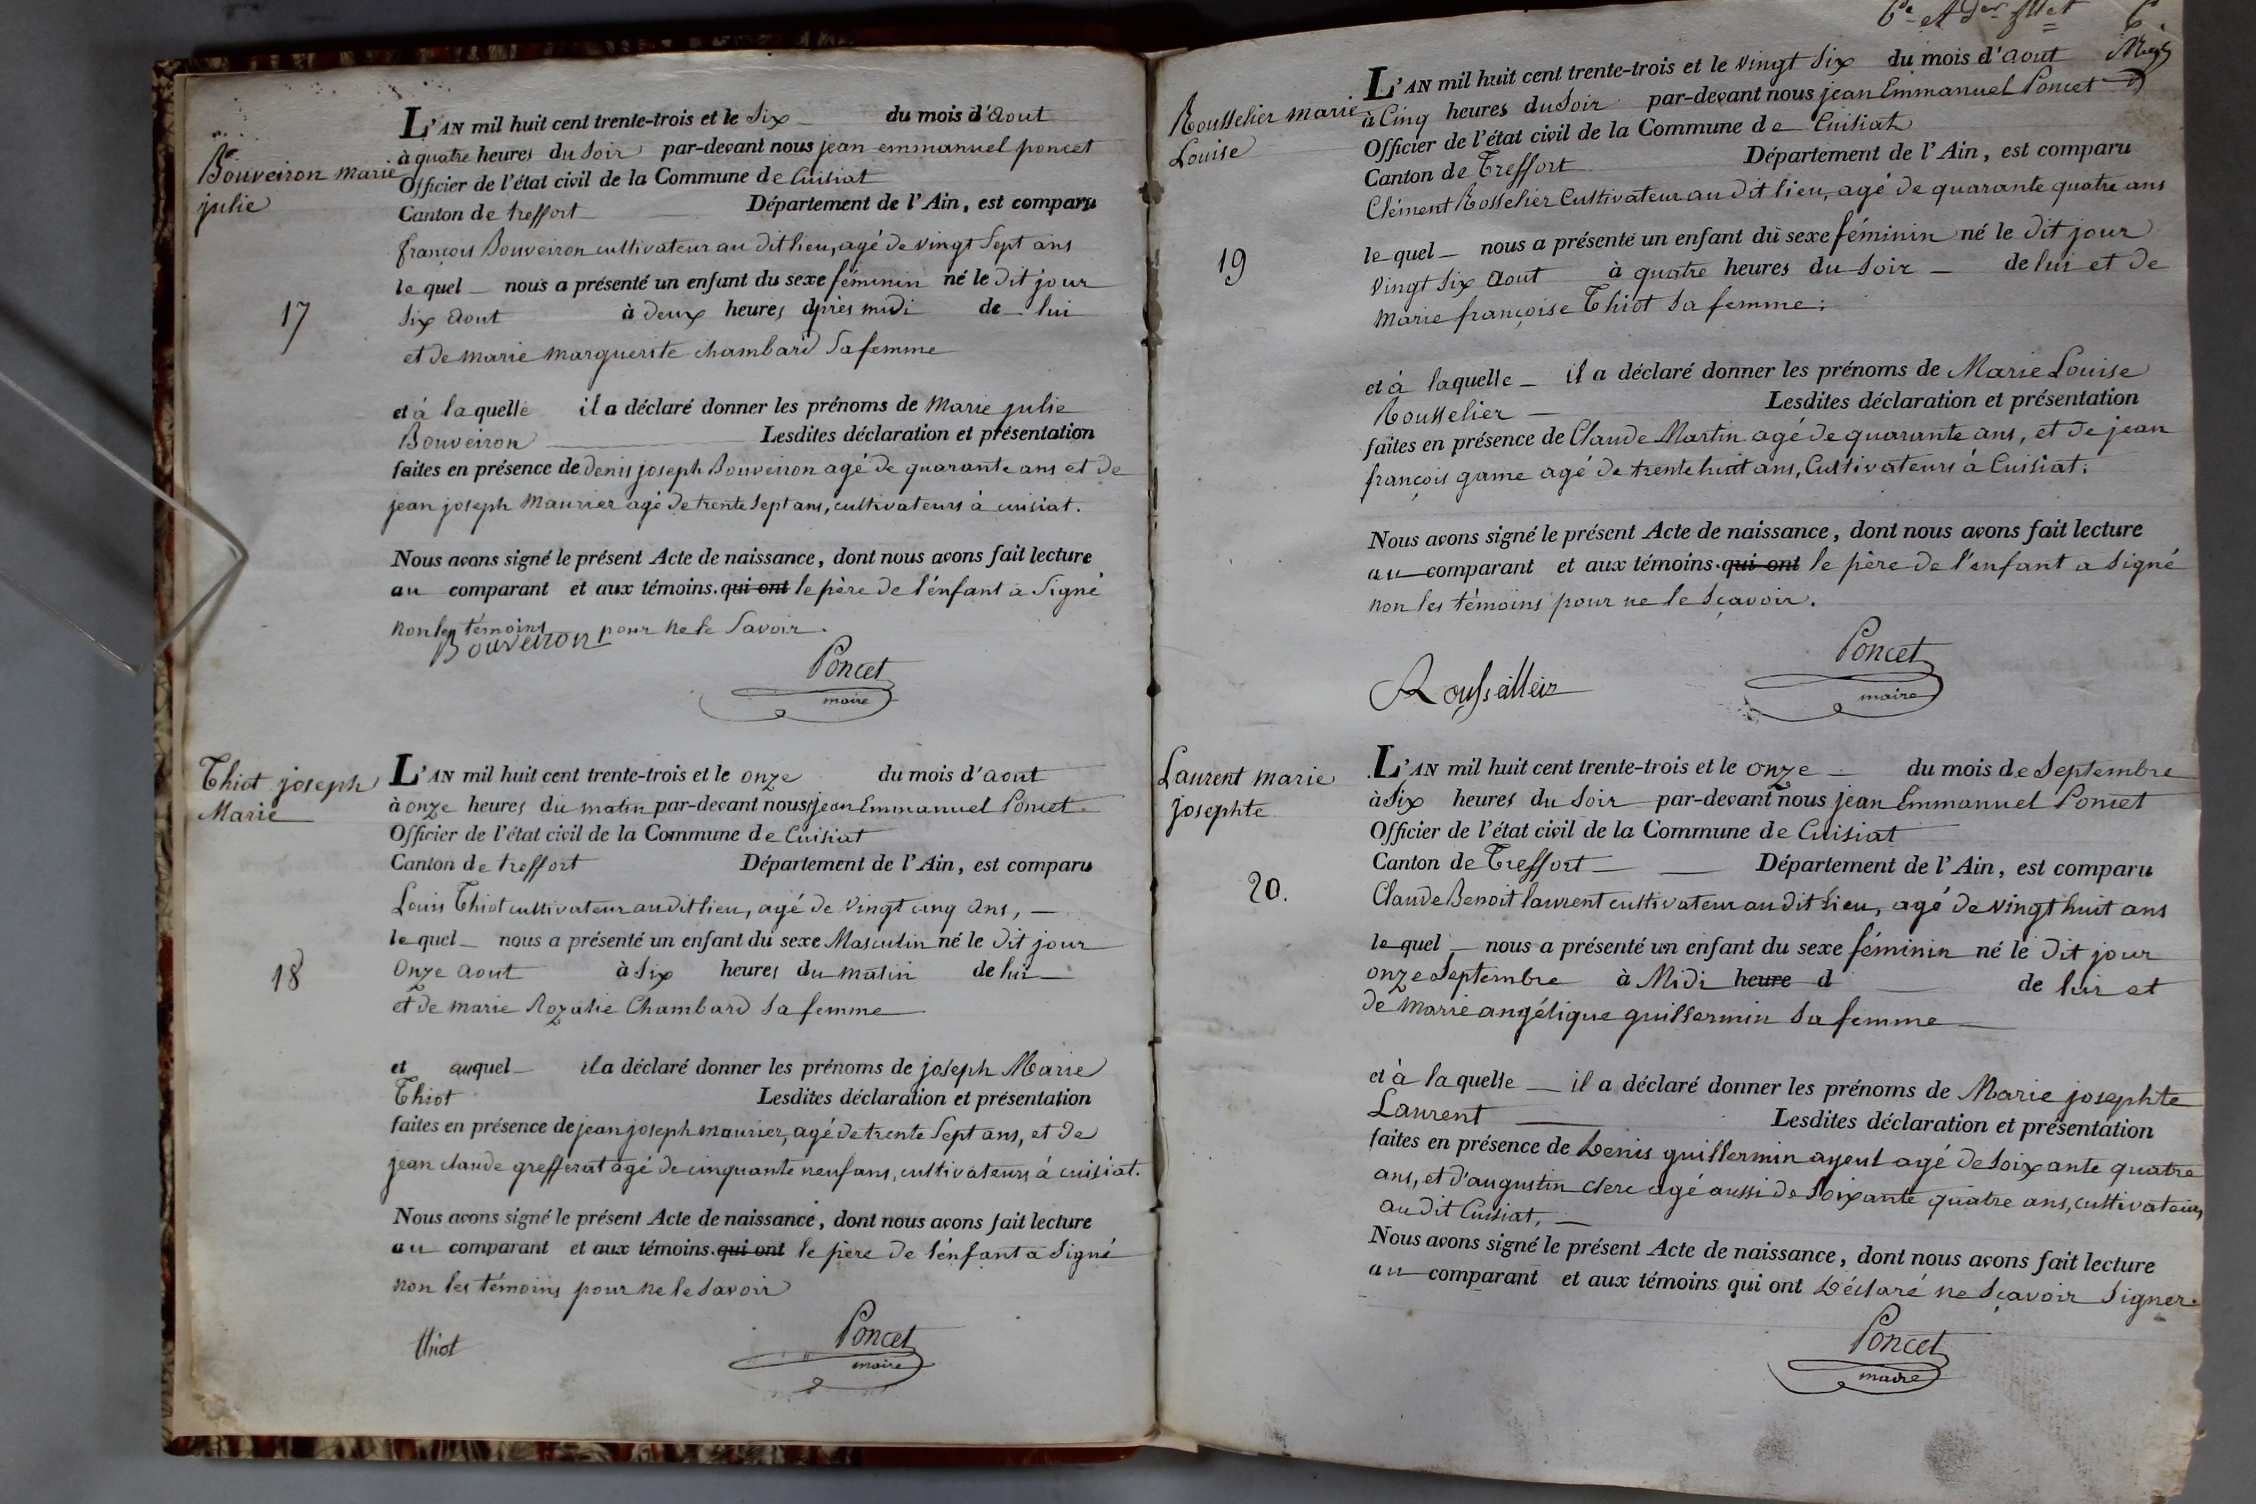 Bouveiron marie
julie
17
L'AN mil huit cent trente-trois et le six du mois d'aout
à quatre heures du soir par-devant nous jean emmanuel poncet
Officier de l'état civil de la Commune de Cuisiat
Canton de treffort Département de l'Ain, est comparu
françois Bouveiron cultivateur au dit lieu, agé de vingt sept ans
le quel nous a présenté un enfant du sexe féminin né le dit jour
six aout à deux heures après midi de lui
et de marie marguerite chambard sa femme
et à la quelle il a déclaré donner les prénoms de Marie julie
Bouveiron Lesdites déclaration et présentation
faites en présence de denis joseph Bouveiron agé de quarante ans et de
jean joseph Maurier agé de trente sept ans, cultivateurs à cuisiat.
Nous avons signé le présent Acte de naissance, dont nous avons fait lecture
au comparant et aux témoins. qui ont le père de l'énfant a signé
non les témoins pour ne le savoir.
Bouveiron
Poncet
maire
Thiot joseph
Marie
18
L'AN mil huit cent trente-trois et le onze du mois d'aout
à onze heures du matin par-devant nous jean Emmanuel Poncet
Officier de l'état civil de la Commune de Cuisiat
Canton de treffort Département de l'Ain, est comparu
Louis Thiot cultivateur au dit lieu, agé de vingt cinq ans,
le quel nous a présenté un enfant du sexe Masculin né le dit jour
Onze aout à six heures du matin de lui
et de marie Rozalie Chambard sa femme
et auquel il a déclaré donner les prénoms de joseph Marie
Thiot Lesdites déclaration et présentation
faites en présence de jean joseph maurier, agé de trente sept ans, et de
jean claude grefferat agé de cinquante neuf ans, cultivateurs á cuisiat.
Nous avons signé le présent Acte de naissance, dont nous avons fait lecture
au comparant et aux témoins. qui ont le père de l'énfant a signé
non les témoins pour ne le savoir
thiot
Poncet
maire
Rousselier marie
Louise
19
L'AN mil huit cent trente-trois et le vingt six du mois d'aout
à Cinq heures du soir par-devant nous jean Emmanuel Poncet
Officier de l'état civil de la Commune de Cuisiat
Canton de Treffort Département de l'Ain, est comparu
Clément Rosselier Cultivateur au dit lieu, agé de quarante quatre ans
le quel nous a présenté un enfant du sexe féminin né le dit jour
vingt six aout à quatre heures du soir de lui et de
marie françoise Thiot sa femme;
et à laquelle il a déclaré donner les prénoms de Marie Louise
Rousselier Lesdites déclaration et présentation
faites en présence de Claude Martin agé de quarante ans, et de jean
françois game agé de trente huit ans, Cultivateurs à Cuisiat.
Nous avons signé le présent Acte de naissance, dont nous avons fait lecture
au comparant et aux témoins. qui ont le père de l'enfant a signé
non les témoins pour ne le sçavoir.
Rousseilleir
Poncet
maire
Laurent marie
josephte
20.
L'AN mil huit cent trente-trois et le onze du mois de septembre
à six heures du soir par-devant nous jean Emmanuel Poncet
Officier de l'état civil de la Commune de Cuisiat
Canton de Treffort Département de l'Ain, est comparu
Claude Benoit laurent cultivateur au dit lieu, agé de vingt huit ans
le quel nous a présenté un enfant du sexe féminin né le dit jour
onze septembre à Midi heure d de lui et
de Marie angélique guillermin sa femme
et à la quelle il a déclaré donner les prénoms de Marie josephte
Laurent Lesdites déclaration et présentation
faites en présence de Denis guillermin ayeul agé de soixante quatre
ans, et d'augustin clerc agé aussi de soixante quatre ans, cultivateurs
au dit Cuisiat,
Nous avons signé le présent Acte de naissance, dont nous avons fait lecture
au comparant et aux témoins qui ont Déclaré ne sçavoir signer.
Poncet
maire